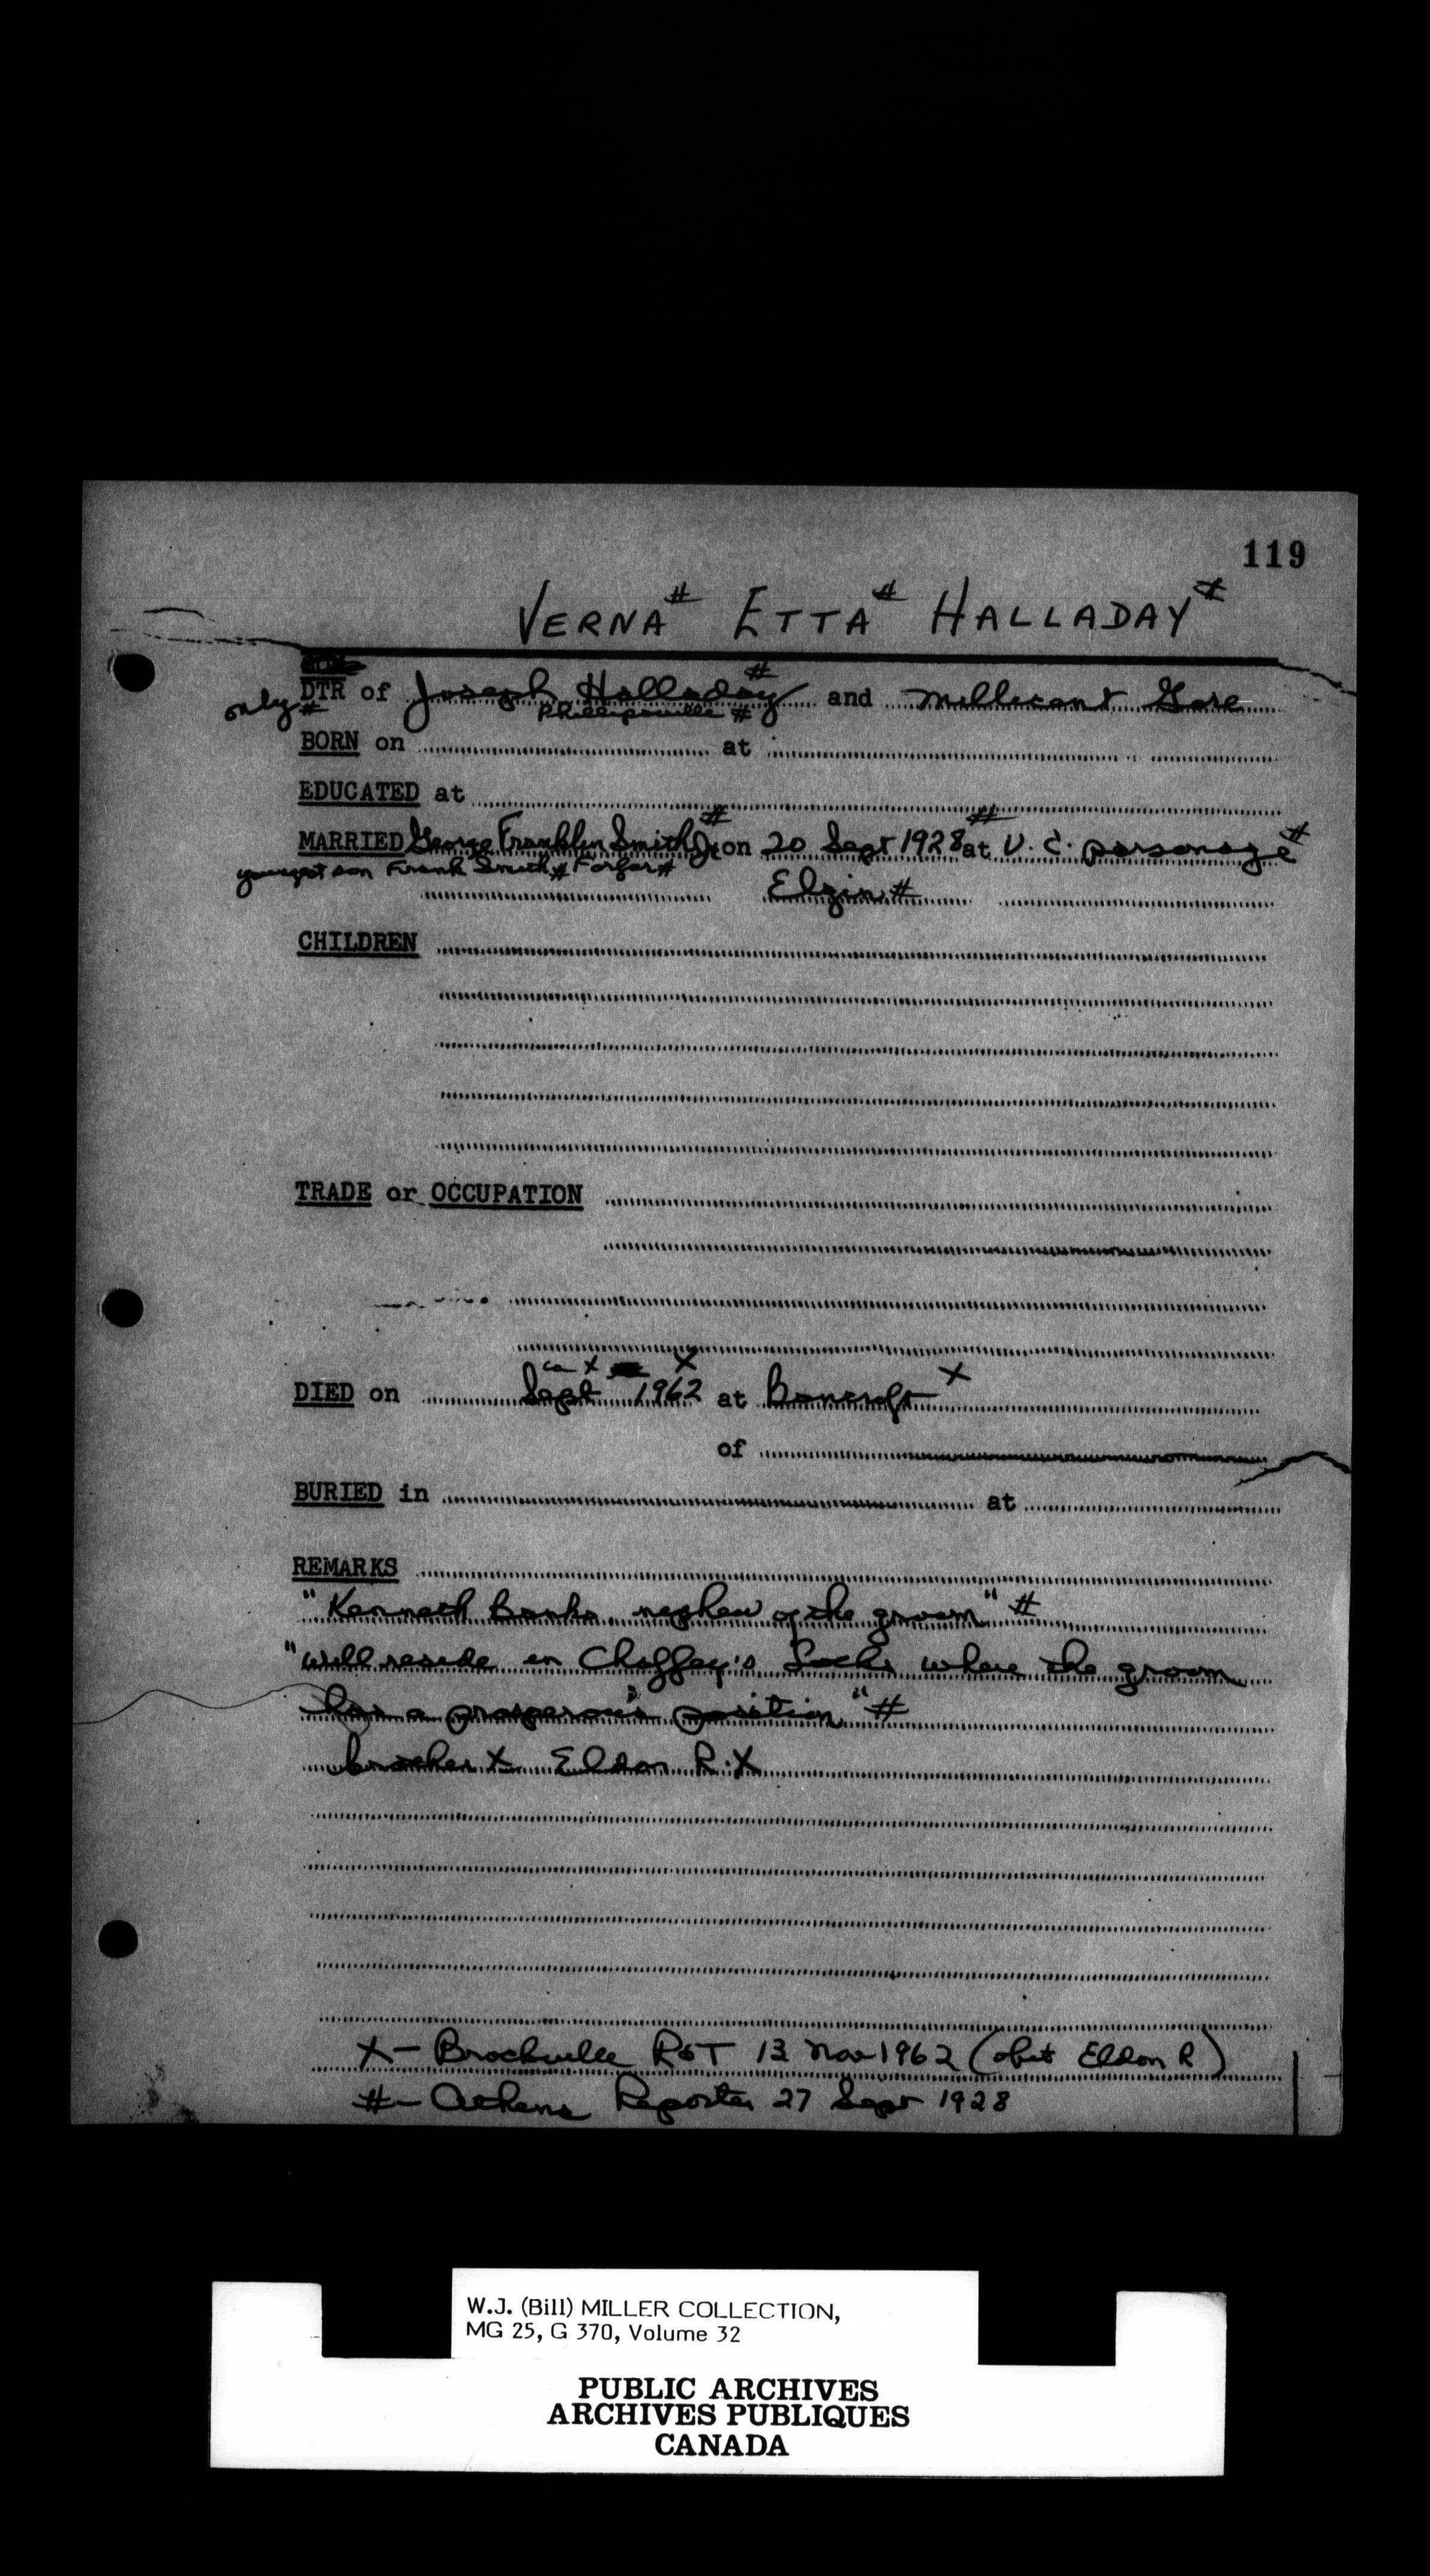 119
VERNA# ETTA# HALLADAY#
only# DTR of Joseph Halladay# and Millicent Gore
Phillipsville #
BORN on at
EDUCATED at
MARRIED George Franklin Smith# on 20 Sept 1928# at U. C. parsonage#
youngest son Frank Smith# Forfar#
Elgin#
CHILDREN
TRADE or OCCUPATION
ca X X
DIED on Sept 1962 at Bancroft X
of
BURIED in at
REMARKS
"Kenneth Banks nephew of the groom" #
"will reside in Chaffey's Locks where the groom
has a prosperous position" #
brother X Eldon R. X
X - Brockville R&T 13 Nov 1962 (obit Eldon R)
# - Athens Reporter 27 Sept 1928
W.J. (Bill) MILLER COLLECTION,
MG 25, G 370, Volume 32
PUBLIC ARCHIVES
ARCHIVES PUBLIQUES
CANADA